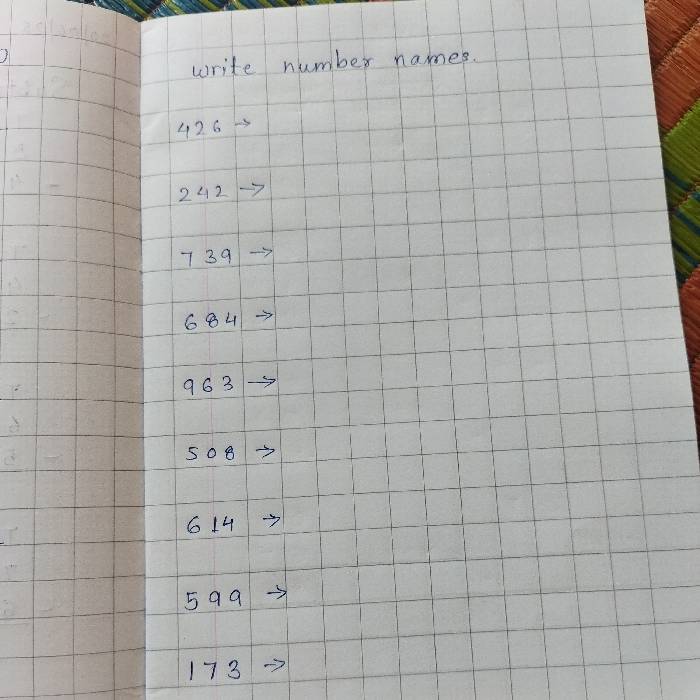 write number names.
426 →
242 →
739 →
684 →
963 →
508 →
614 →
599 →
173 →